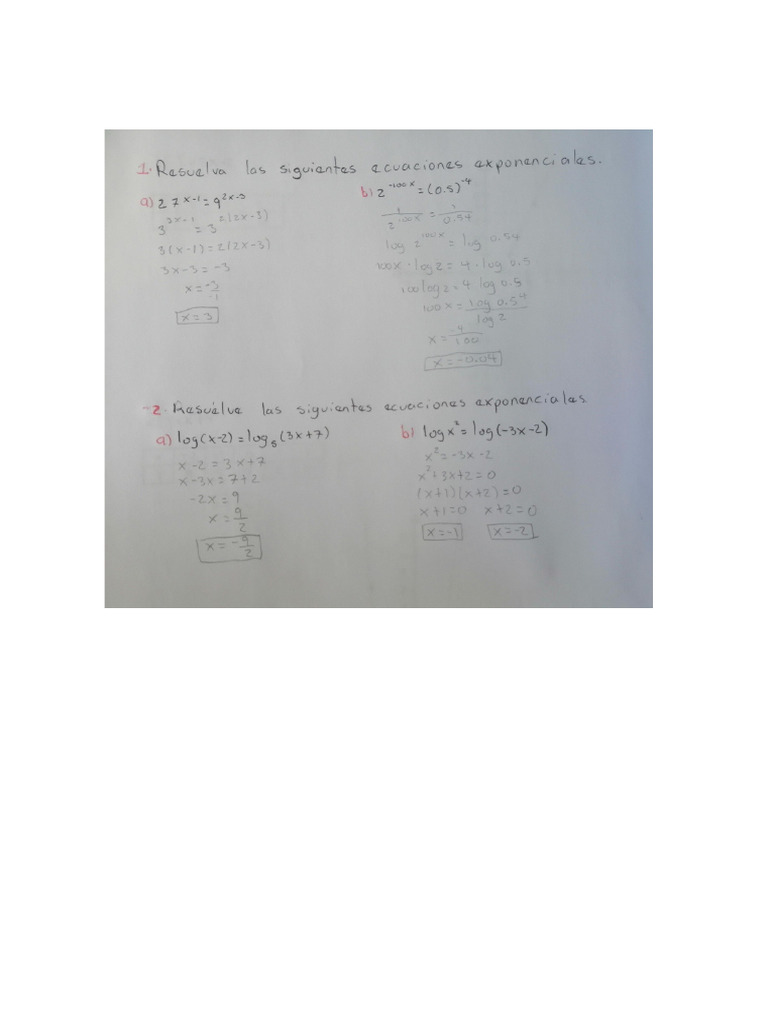 1. Resuelva las siguientes ecuaciones exponenciales.
a) 27^(x-1) = 9^(2x-3)
3^(3x-1) = 3^(2(2x-3))
3(x-1) = 2(2x-3)
3x-3 = -3
x = -3/-1
x = 3
b) 2^(-100x) = (0.5)^(-4)
1/2^(100x) = 1/0.5^4
log 2^(100x) = log 0.5^4
100x · log 2 = 4 · log 0.5
100 log 2 = 4 log 0.5
100x = log 0.5^4 / log 2
x = -4/100
x = -0.04
-2. Resuelve las siguientes ecuaciones exponenciales
a) log(x-2) = log_8 (3x+7)
x-2 = 3x+7
x-3x = 7+2
-2x = 9
x = 9/2
x = -9/2
b) log x² = log(-3x-2)
x² = -3x-2
x²+3x+2 = 0
(x+1)(x+2) = 0
x+1=0 x+2=0
x=-1 x=-2